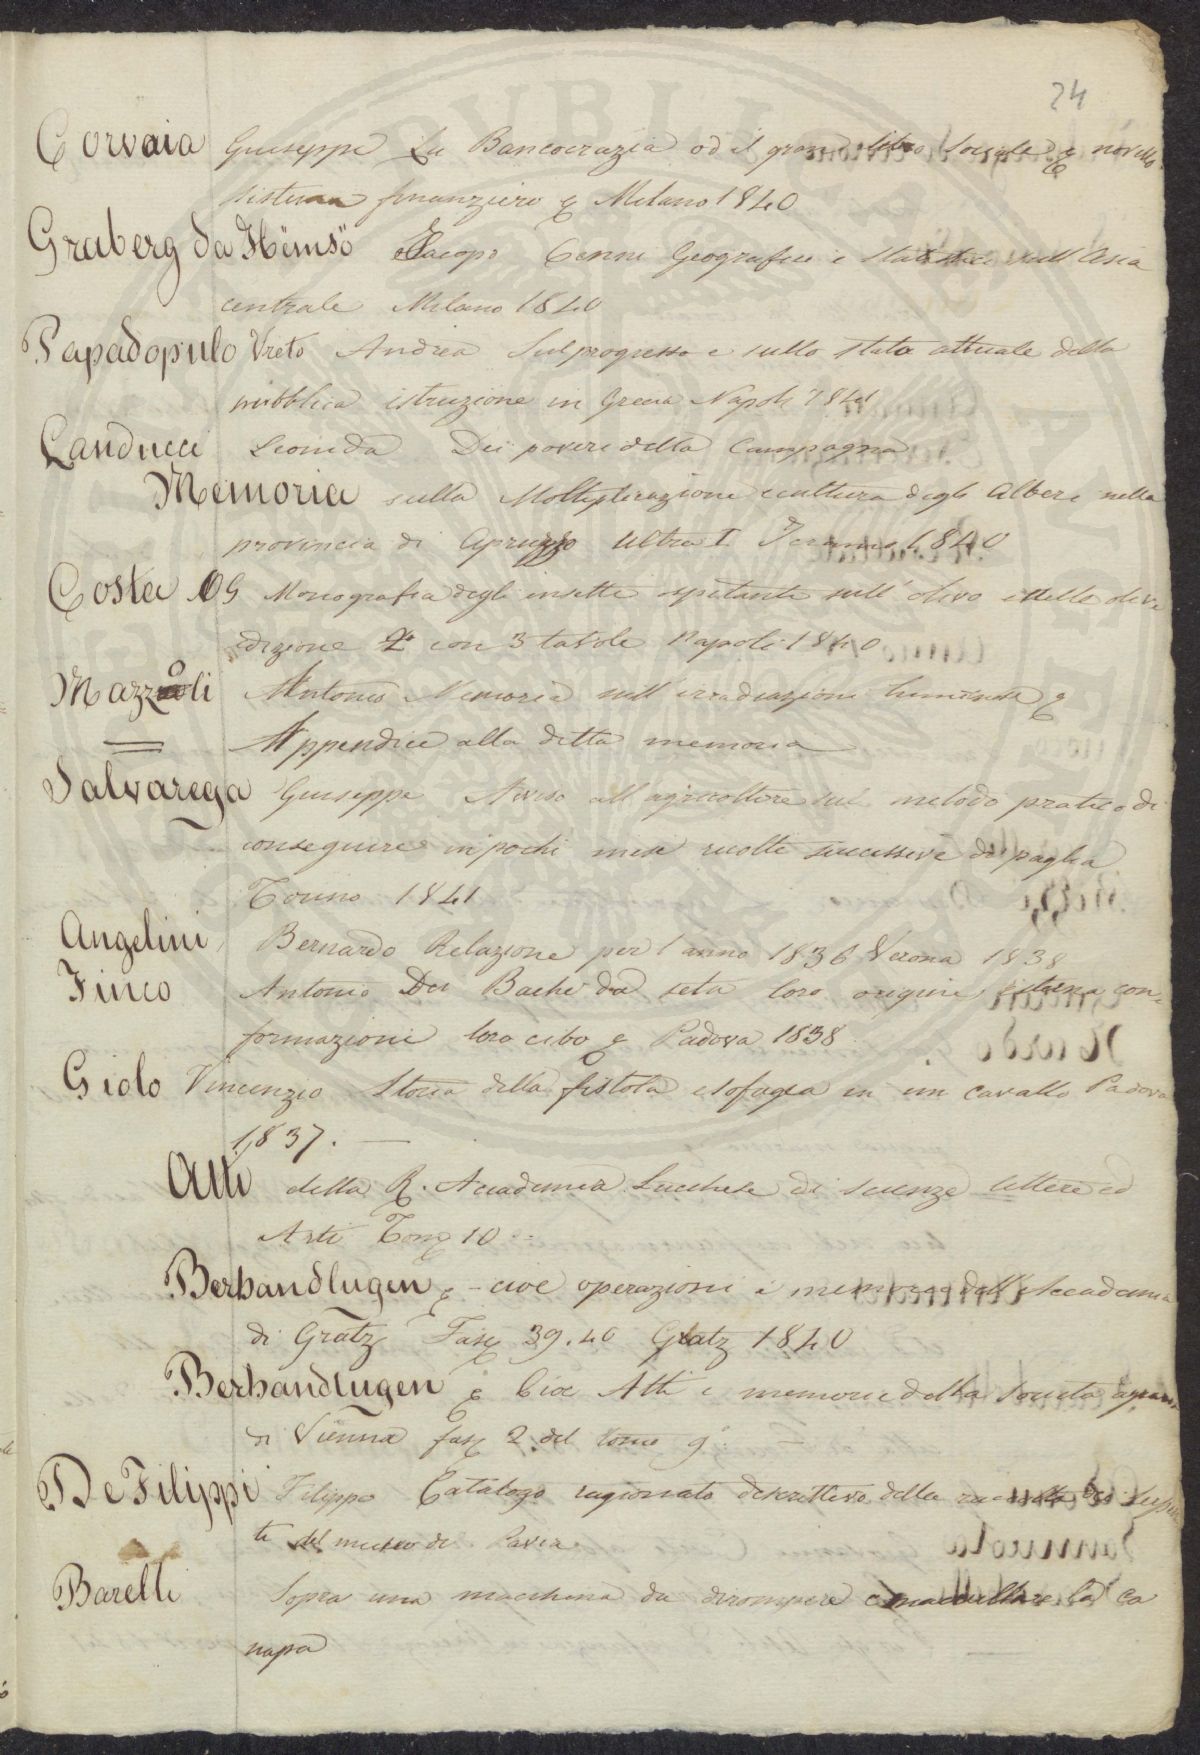 24
Corvaia Giuseppe La Bancocrazia od il gran libro sociale & novello
sistema finanziero & Milano 1840
Graberg da Hëmsö Jacopo Cenni Geografici e statistici sull'Asia
centrale Milano 1840
Papadopulo Vreto Andrea Sul progresso e sullo stato attuale della
pubblica istruzione in Grecia Napoli 1841
Landucci Leonida Dei poveri della Campagna
Memoria sulla Moltiplicazione e cultura degli Alberi nella
provincia di Apruzzo Ultra I. Teramo 1840
Costa OG Monografia degli insetti ospitanti sull'olivo e nelle olive
edizione 2a con 3 tavole Napoli 1840
Mazzoli Antonio Memoria sull'irradiazione luminosa &
Appendice alla detta memoria
Salvarega Giuseppe Avviso all'agricoltore sul metodo pratico di
conseguire in pochi mesi ricolte successive di paglia
Torino 1841
Angelini Bernardo Relazione per l anno 1836 Verona 1838
Finco Antonio Dei Bachi da seta loro origine, esterna con-
formazione loro cibo & Padova 1838
Giolo Vincenzo Storia della fistola esofagea in un cavallo Padova
1837. —
Atti della R. Accademia Lucchese di scienze lettere ed
Arti Tom 10
Berhandlugen & - cioè operazioni e memorie dell'Accademia
di Gratz Fasc 39.40 Gratz 1840
Berhandlugen & Cioe Atti e memorie della Società agraria
di Vienna fasc 2. del tomo 9° —
De Filippi Filippo Catalogo ragionato descrittivo della raccolta dei serpen
ti del museo di Pavia
Barelli Sopra una macchina da dirompere e maciullare la ca
napa